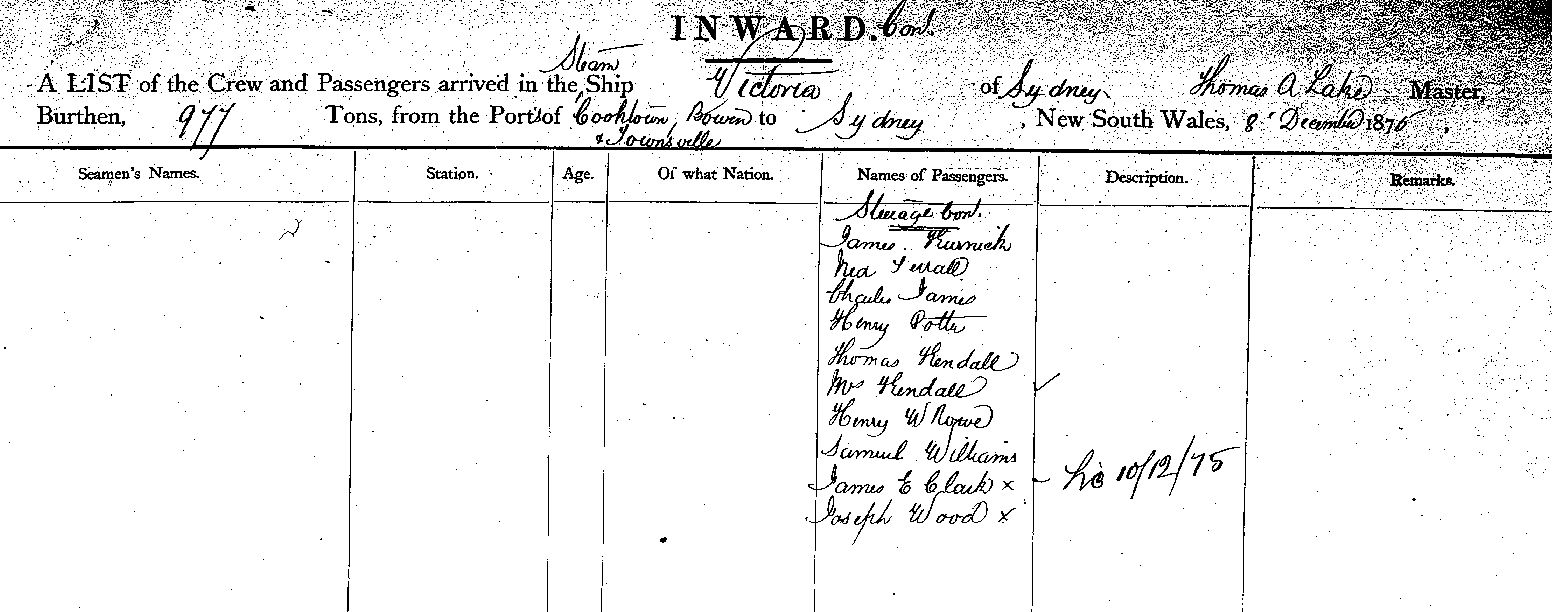 INWARD. Con!
Steam
A LIST of the Crew and Passengers arrived in the Ship Victoria of Sydney Thomas A Lake Master,
Burthen, 977 Tons, from the Port s of Cooktown, Bowen to Sydney, New South Wales, 8' December 1875.
& Townsville
Seamen's Names. Station. Age. Of what Nation. Names of Passengers. Description. Remarks.
Steerage Con!
James
Charles James
Henry Potter
Thomas Kendall
Mrs Kendall
Henry W Rowe
Samuel Williams
James E Clark x 10/12/75
Joseph Wood x